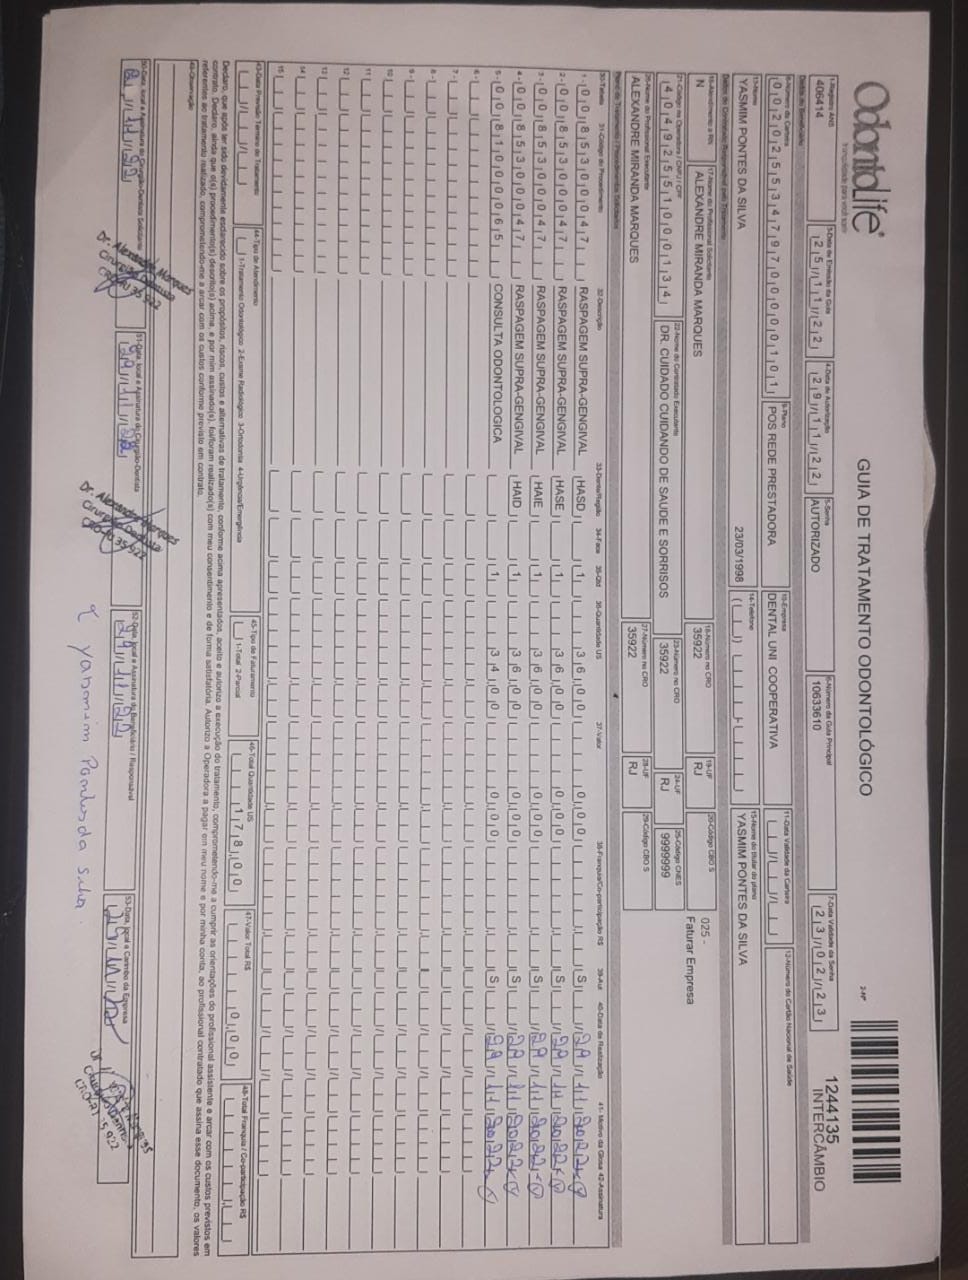 OdontoLife®
tranquilidade para você sorrir
GUIA DE TRATAMENTO ODONTOLÓGICO
2-Nº
1244135
INTERCÂMBIO
1-Registro ANS
406414
3-Data de Emissão da Guia
25/11/22
4-Data de Autorização
29/11/22
5-Senha
AUTORIZADO
6-Número da Guia Principal
10633610
7-Data Validade da Senha
23/02/23
Dados do Beneficiário
8-Número da Carteira
00202553479700000101
9-Plano
POS REDE PRESTADORA
10-Empresa
DENTAL UNI COOPERATIVA
11-Data Validade da Carteira
12-Número do Cartão Nacional de Saúde
13-Nome
YASMIM PONTES DA SILVA
23/03/1998
14-Telefone
15-Nome do titular do plano
YASMIM PONTES DA SILVA
Dados do Contratado Responsável pelo Tratamento
16-Atendimento a RN
N
17-Nome do Profissional Solicitante
ALEXANDRE MIRANDA MARQUES
18-Número no CRO
35922
19-UF
RJ
20-Código CBO S
025 -
Faturar Empresa
21-Código na Operadora / CNPJ / CPF
40492551000134
22-Nome do Contratado Executante
DR. CUIDADO CUIDANDO DE SAUDE E SORRISOS
23-Número no CRO
35922
24-UF
RJ
25-Código CNES
9999999
26-Nome do Profissional Executante
ALEXANDRE MIRANDA MARQUES
27-Número no CRO
35922
28-UF
RJ
29-Código CBO S
Plano de Tratamento / Procedimentos Solicitados
30-Tabela 31-Código do Procedimento 32-Descrição 33-Dente/Região 34-Face 35-Qtd 36-Quantidade US 37-Valor 38-Franquia/Co-participação R$ 39-Aut 40-Data de Realização 41- Motivo da Glosa 42-Assinatura
1 - 00 85300047 RASPAGEM SUPRA-GENGIVAL HASD 1 36,00 0,00 S 29/11/2022
2 - 00 85300047 RASPAGEM SUPRA-GENGIVAL HASE 1 36,00 0,00 S 29/11/2022
3 - 00 85300047 RASPAGEM SUPRA-GENGIVAL HAIE 1 36,00 0,00 S 29/11/2022
4 - 00 85300047 RASPAGEM SUPRA-GENGIVAL HAID 1 36,00 0,00 S 29/11/2022
5 - 00 81000065 CONSULTA ODONTOLOGICA 1 34,00 0,00 S 29/11/2022
6 -
7 -
8 -
9 -
10
11
12
13
14
15
43-Data Previsão Término do Tratamento
44-Tipo de Atendimento
1-Tratamento Odontológico 2-Exame Radiológico 3-Ortodontia 4-Urgência/Emergência
45-Tipo de Faturamento
1-Total 2-Parcial
46-Total Quantidade US
178,00
47-Valor Total R$
0,00
48-Total Franquia / Co-participação R$
Declaro, que após ter sido devidamente esclarecido sobre os propósitos, riscos, custos e alternativas de tratamento, conforme acima apresentados, aceito e autorizo a execução do tratamento, comprometendo-me a cumprir as orientações do profissional assistente e arcar com os custos previstos em
contrato. Declaro, ainda que o(s) procedimento(s) descrito(s) acima, e por mim assinado(s), foi/foram realizado(s) com meu consentimento e de forma satisfatória. Autorizo a Operadora a pagar em meu nome e por minha conta, ao profissional contratado que assina esse documento, os valores
referentes ao tratamento realizado, comprometendo-me a arcar com os custos conforme previsto em contrato.
49-Observação
50-Data, local e Assinatura do Cirurgião-Dentista Solicitante
51-Data, local e Assinatura do Cirurgião-Dentista
29/11/22
52-Data, local e Assinatura do Beneficiário / Responsável
29/11/22
53-Data, local e Carimbo da Empresa
Dr. Alexandre Marques
Cirurgião Dentista
CRO-RJ 35 922
Dr. Alexandre Marques
Cirurgião Dentista
CRO-RJ 35 922
Yasmim Pontes da Silva.
CRO-RJ 35 922